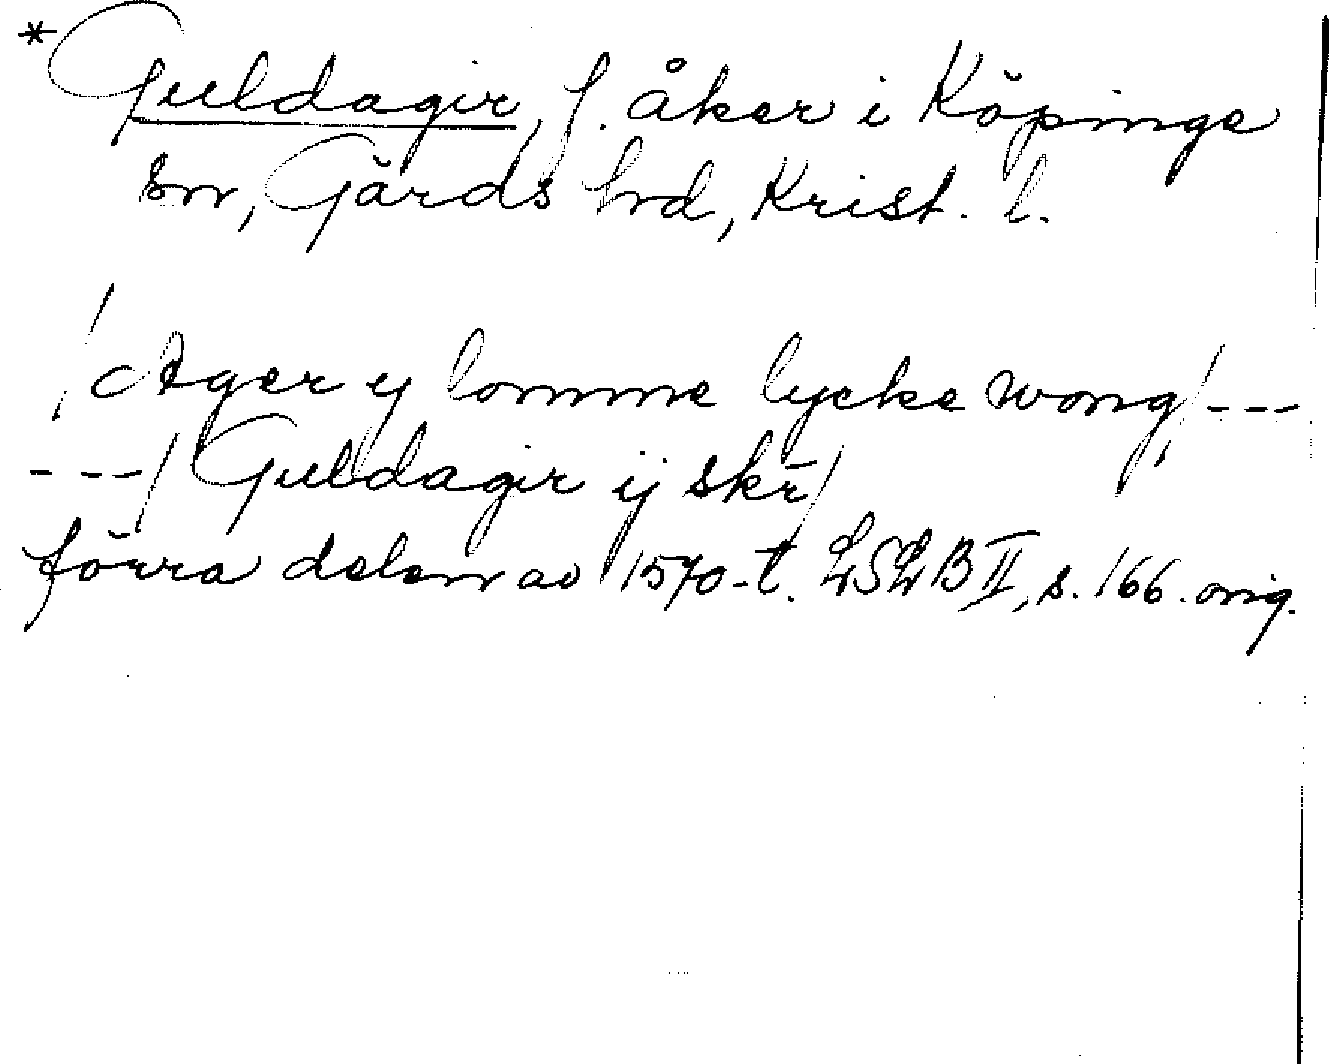 * Guldagir, f. åker i Köpinge
sn, Gärds hd, Krist. l.
/Ager y lomme lycke wong/ ---
---/ Guldagir ij skr̄/
förra delen av 1570-t. LSLB II, s. 166. orig.